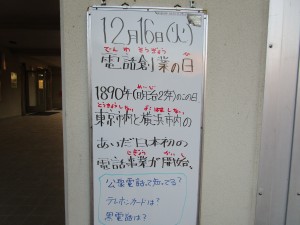 12月16日(火)
でんわ そうぎょう ひ
電話創業の日
めいじ
1890年(明治23年)のこの日
とうきょうしない よこはましない
東京市内と横浜市内の
あいだ日本初の
じぎょう かいし
電話事業が開始、
公衆電話って知ってる?
テレホンカードは?
黒電話は?